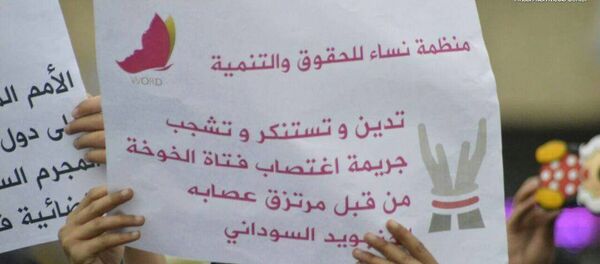 منظمة نساء للحقوق والتنمية
WORD
تدين و تستنكر و تشجب
جريمة اغتصاب فتاة الخوخة
من قبل مرتزق عصابه
السوداني
الأمم
دول
المجرم